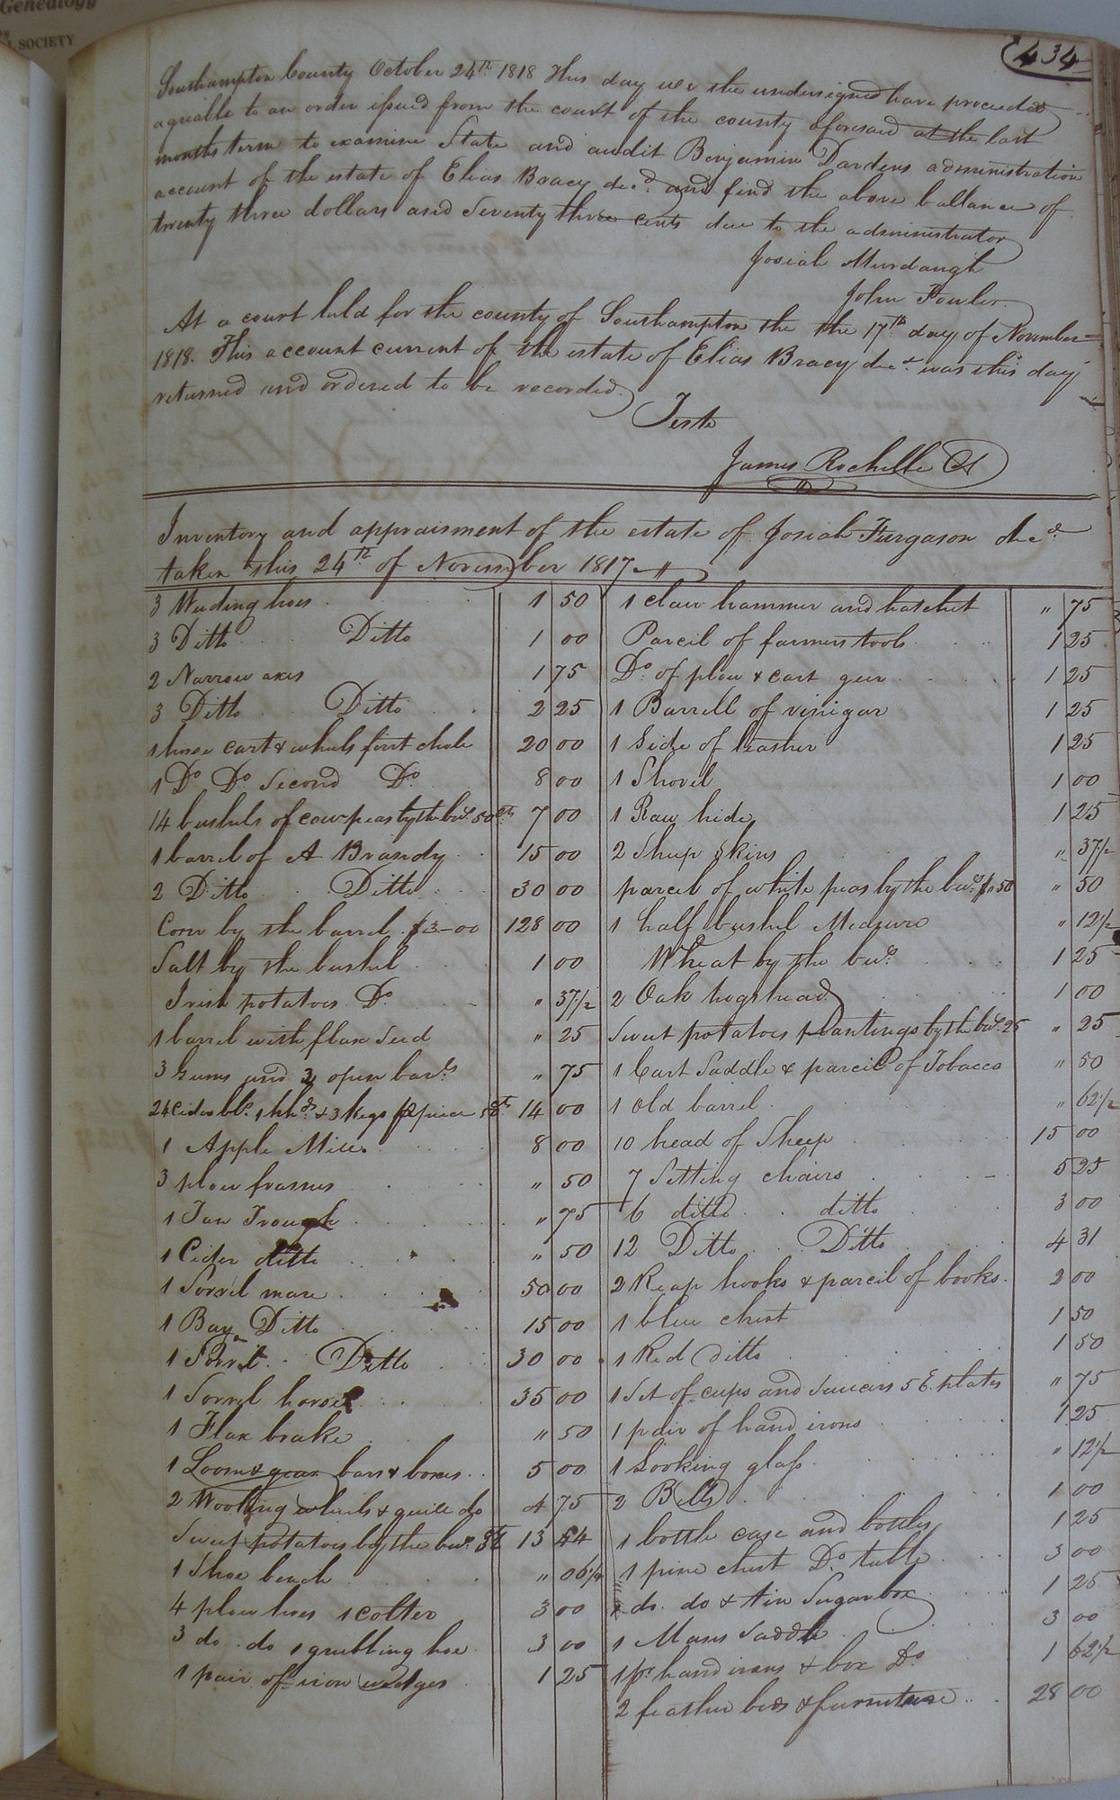 Genealogy
SOCIETY
434
Southampton County October 24th 1818 This day we the undersigned have proceeded
agreable to an order issued from the court of the county aforesaid at the last
months term to examine State and audit Benjamin Dardens administration
account of the estate of Elias Bracy decd and find the above ballance of
twenty three dollars and Seventy three cents due to the administrator
Josiah Murdaugh
John Fowler
At a court held for the county of Southampton the the 17th day of November
1818. This account current of the estate of Elias Bracy decd was this day
returned and ordered to be recorded
Teste
James Rochelle Ct
Inventory and appraisment of the estate of Josiah Furgason decd
taken this 24th of November 1817
3 Weeding hoes 1 50
3 Ditto Ditto 1 00
2 Narrow axes 1 75
3 Ditto Ditto 2 25
1 horse cart & wheels first choice 20 00
1 Do Do Second Do 8 00
14 bushels of cow peas by the bul 50cts 7 00
1 barrel of A Brandy 15 00
2 Ditto Ditto 30 00
Corn by the barrel $3-00 128 00
Salt by the bushel 1 00
Irish potatoes Do " 37 1/2
1 barrel with flax Seed " 25
3 Gums and 3 open barls " 75
24 Cider bls 1 hhd & 3 kegs 14 00
1 Apple Mill 8 00
3 plow frames " 50
1 Tan Trough " 75
1 Cider ditto " 50
1 Sorril mare 50 00
1 Bay Ditto 15 00
1 Sorril Ditto 30 00
1 Sorryl horse 35 00
1 Flax brake " 50
1 Loom & gear bars & boxes 5 00
2 Wooling wheels & quill do 4 75
Sweet potatoes by the bul 13 54
1 Shoe bench " 06 1/4
4 plow hoes 1 colter 3 00
3 do do 1 grubbing hoe 3 00
1 pair of iron wedges 1 25
1 claw hammer and hatchet " 75
Parcil of farmers tools 1 25
Do of plow & cart geer 1 25
1 Barrell of vinigar 1 25
1 Side of leather 1 25
1 Shovel 1 00
1 Raw hide 1 25
2 Sheep Skins " 37 1/2
parcel of white peas by the bul $0 50 " 50
1 half bushel Measure " 12 1/2
Wheat by the bul 1 25
2 Oak hogsheads 1 00
Sweet potatoes plantings by the bul 25 " 25
1 Cart Saddle & parcel of Tobacco " 50
1 Old barrel " 62 1/2
10 head of Sheep 15 00
7 Setting chairs 5 25
6 ditto ditto 3 00
12 Ditto Ditto 4 31
2 Reap hooks & parcil of books 2 00
1 blue chest 1 50
1 Red ditto 1 50
1 Set of cups and Saucers 5 E. plates " 75
1 pair of hand irons 1 25
1 Looking glass " 12 1/2
2 Bells 1 00
1 bottle case and bottles 1 25
1 pine chest Do table 3 00
do do & tin Sugar box 1 25
1 Mans Saddle 3 00
1 pr hand irons & box Do 1 62 1/2
2 feather beds & furniture 28 00